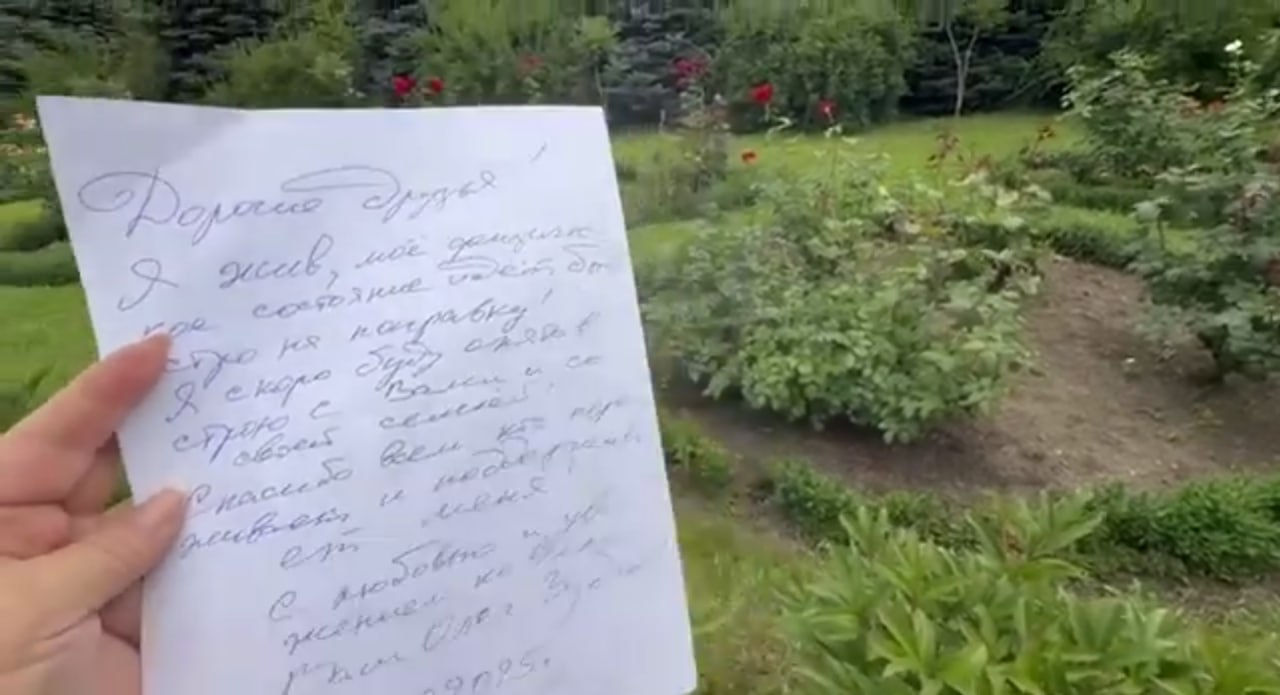 Дорогие друзья!
Я жив, моё
кое состояние идёт бы
стро на поправку!
Я скоро буду опять в
строю с Вами и со
своей семьёй!
Спасибо всем кто пере
живает и поддержива
ет меня!
С любовью и ува
жением ко
Олег